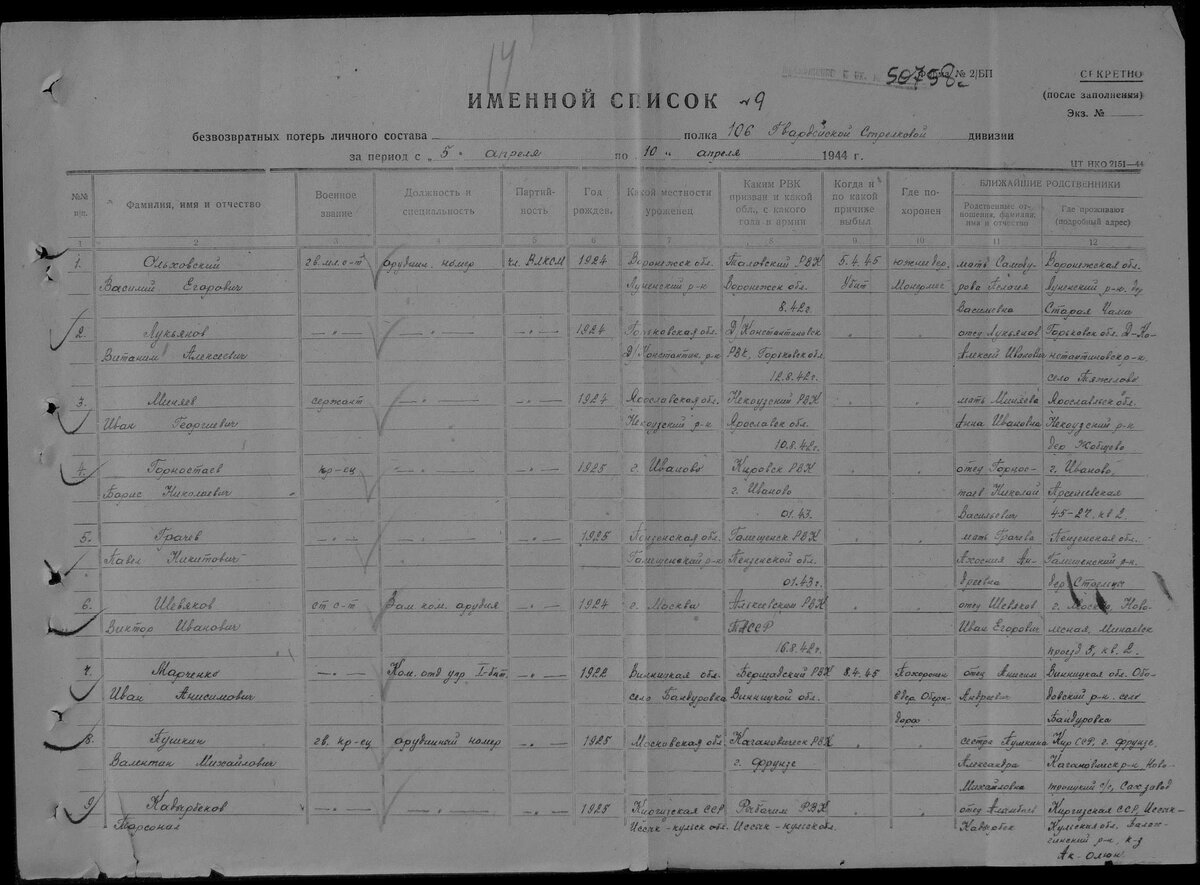 14
50758с Форма № 2/БП
СЕКРЕТНО
(после заполнения)
Экз. №
ИМЕННОЙ СПИСОК №9
безвозвратных потерь личного состава полка 106 Гвардейской Стрелковой дивизии
за период с „5“ апреля по „10“ апреля 1944 г.
ЦТ НКО 7151—44
№№ п/п. Фамилия, имя и отчество Военное звание Должность и специальность Партийность Год рожден. Какой местности уроженец Каким РВК призван и какой обл., с какого года в армии Когда и по какой причине выбыл Где похоронен БЛИЖАЙШИЕ РОДСТВЕННИКИ
Родственные отношения, фамилия, имя и отчество Где проживают (подробный адрес)
1 2 3 4 5 6 7 8 9 10 11 12
1. Ольховский гв. мл. с-т орудийн. номер чл. ВЛКСМ 1924 Воронежск обл. Таловский РВК 5.4.45 южнее дер. мать Воронежская обл.
Василий Егорович р-н Воронежск обл. Убит Василевна
8.42 г. Старая Чама
2. Лукьянов —"— —"— —"— 1924 Горьковская обл. Д/Константиновск отец Лукьянов Горьковск обл. Д-Ко-
Виталий Алексеевич Д/Константин. р-н РВК, Горьковск обл. Алексей Иванович нстантиновск р-н
12.8.42 г. село Тяжелово
3. Миняев сержант —"— —"— 1924 Ярославская обл. Некоузский РВК " " мать Миняева Ярославск обл.
Иван Георгиевич Некоузский р-н Ярославск обл. Анна Ивановна Некоузский р-н
10.8.42 г. дер
4. Горностаев кр-ец —"— —"— 1925 г. Иваново Кировск РВК " " отец Горнос- г. Иваново,
Борис Николаевич г. Иваново таев Николай Арсеньевская
01.43. Васильевич 45-27, кв 2.
5. Грачев —"— —"— —"— 1925 Пензенская обл. РВК " " мать Грачева Пензенская обл.
Павел Никитович р-н Пензенской обл. Ан- р-н.
01.43 г. дреевна дер.
6. Шевяков ст с-т Зам. ком. орудия —"— 1924 г. Москва Алексеевским РВК " " отец Шевяков г. Москва, Ново-
Виктор Иванович Иван Егорович лесная, Минаевск
16.8.42 г. проезд 5, кв. 2.
7. Марченко —"— Ком. отд упр I-бат —"— 1922 Винницкая обл. Бершадский РВК 8.4.45 Похоронен отец Анисим Винницкая обл. Обо-
Иван Анисимович село Бандуровка Винницкой обл. в дер. Оберн- Андреевич довский р-н. село
дорф Бандуровка
8. Пушкин гв. кр-ец орудийный номер —"— 1925 Московская обл. Кагановическ РВК " " сестра Пушкина Кир ССР, г. Фрунзе,
Валентин Михайлович г. Фрунзе Александра Кагановическ р-н, Ново-
Михайловна троицкий с/с, Сахзавод
9. Кадырбеков —"— —"— —"— 1925 Киргизская ССР Рыбачим РВК " " отец Киргизская ССР, Иссык-
Иссык-кульск обл. Иссык-кульск обл. Кадырбек Кульская обл.
р-н, к-з
Ак-Олюн